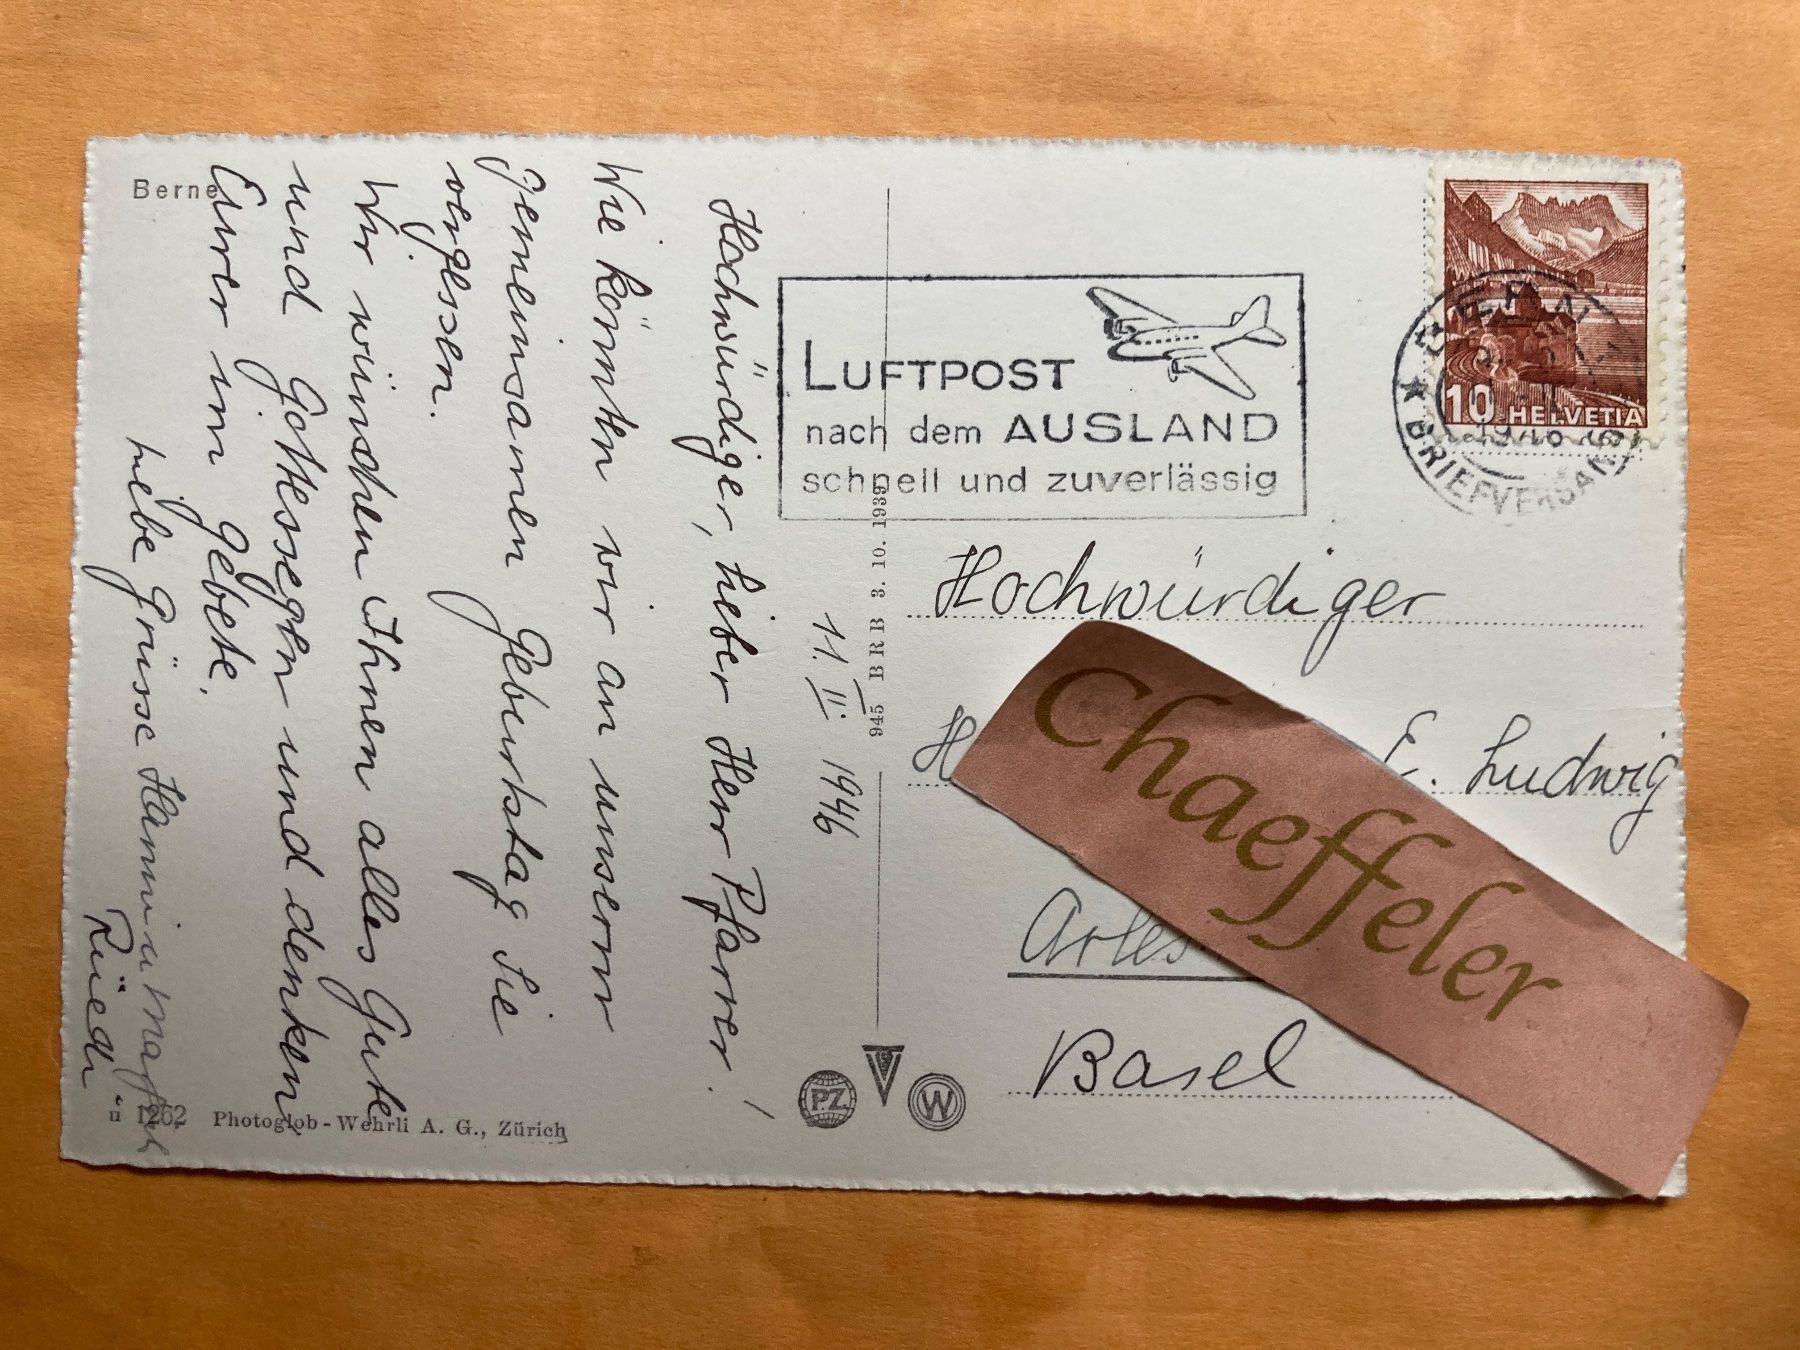 Berne
11. II. 1946
Hochwürdiger, lieber Herr Pfarrer!
Wie könnten wir an unserm
gemeinsamen Geburtstag Sie
vergessen.
Wir wünschen Ihnen alles Gute
und Gottessegen und denken
Eurer im Gebete.
Liebe Grüsse Hanni u
Rüedi
n 1262 Photoglob-Wehrli A. G., Zürich
945 BRB 3. 10. 1939
PZ
W
LUFTPOST
nach dem AUSLAND
schnell und zuverlässig
10 HELVETIA
BRIEFVERSAND
Hochwürdiger
H E. Ludwig
Chaeffeler
Arles
Basel